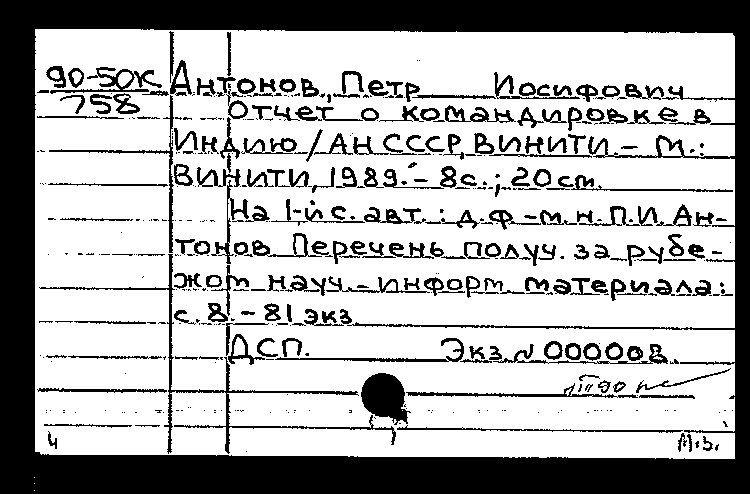 90-50К Антонов, Петр Иосифович
758 Отчет о командировке в
Индию / АН СССР, ВИНИТИ. – М.:
ВИНИТИ, 1989. – 8 с.; 20 cm.
На 1-й с. авт.: д.ф-м.н. П.И. Ан-
тонов Перечень получ. за рубе-
жом науч.-информ. материала:
с. 8. – 81 экз.
ДСП. Экз. № 000008.
4 М.З.